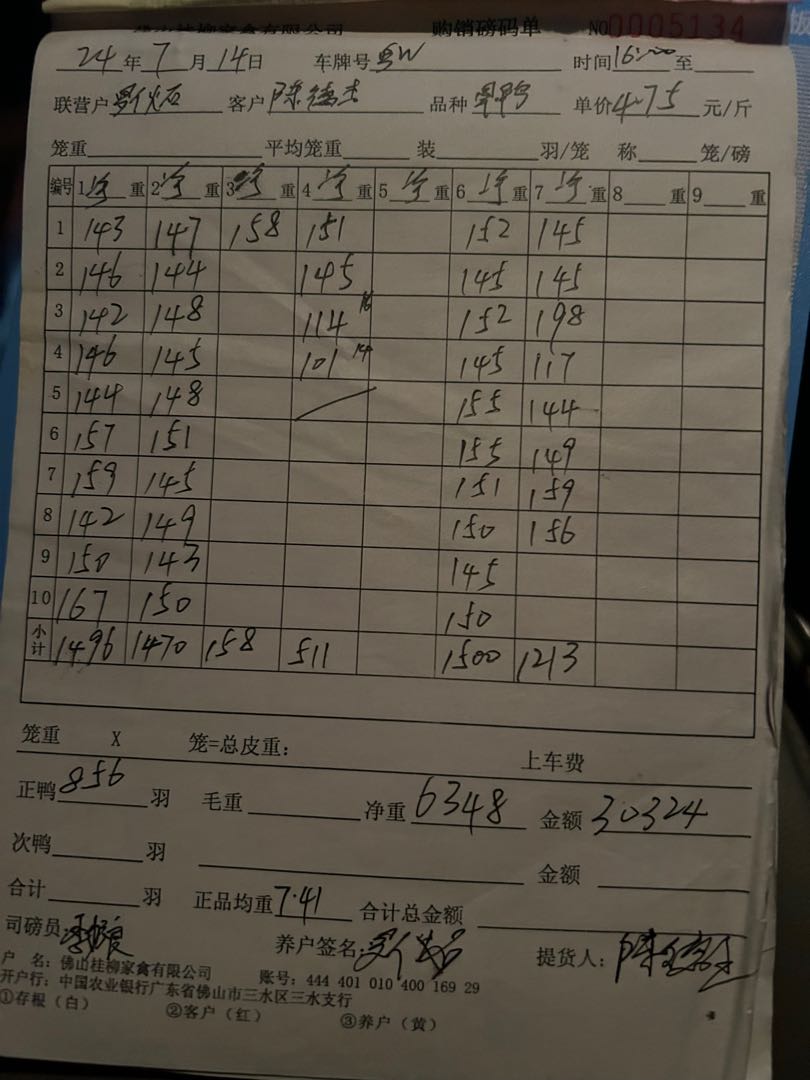 佛山桂柳家禽有限公司 购销磅码单 NO0005134
24年7月14日 车牌号 时间16:00至
联营户刘火石 客户陈德杰 品种 单价4.75元/斤
笼重 平均笼重 装 羽/笼 称 笼/磅
编号 1 重 2 重 3 重 4 重 5 重 6 重 7 重 8 重 9 重
1 143 147 158 151 152 145
2 146 144 145 145 145
3 142 148 114 16 152 198
4 146 145 101 14 145 117
5 144 148 155 144
6 157 151 155 149
7 159 145 151 159
8 142 149 150 156
9 150 143 145
10 167 150 150
小计 1496 1470 158 511 1500 1213
笼重 X 笼=总皮重: 上车费
正鸭856羽 毛重 净重6348 金额30324
次鸭 羽 金额
合计 羽 正品均重7.41 合计总金额
司磅员: 养户签名: 提货人:
户 名: 佛山桂柳家禽有限公司 账号: 444 401 010 400 169 29
开户行: 中国农业银行广东省佛山市三水区三水支行
①存根(白) ②客户(红) ③养户(黄)